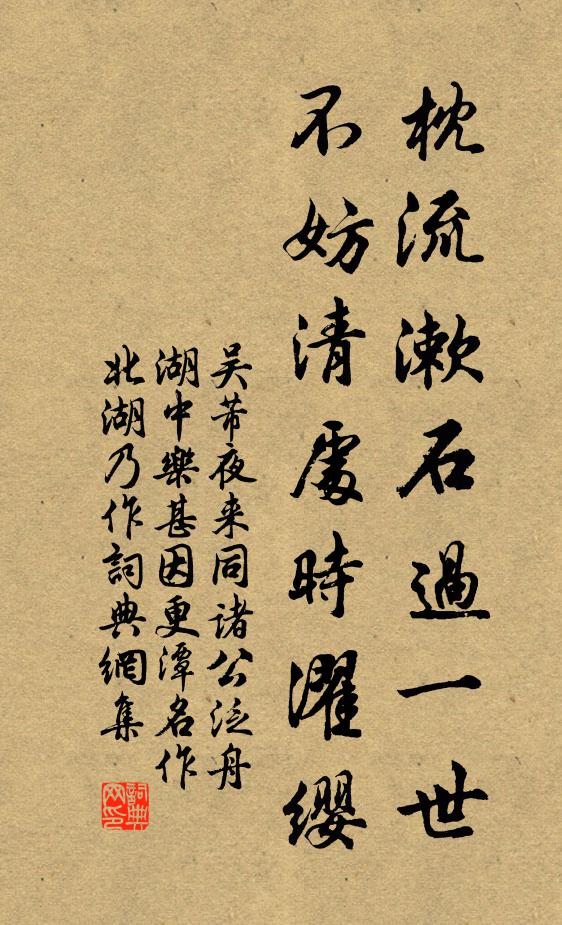 枕流漱石過一世
不妨清處時濯纓
吴芾夜来同諸公泛舟
湖中樂甚因更潭名作
北湖乃作詞典網集
詞典网印